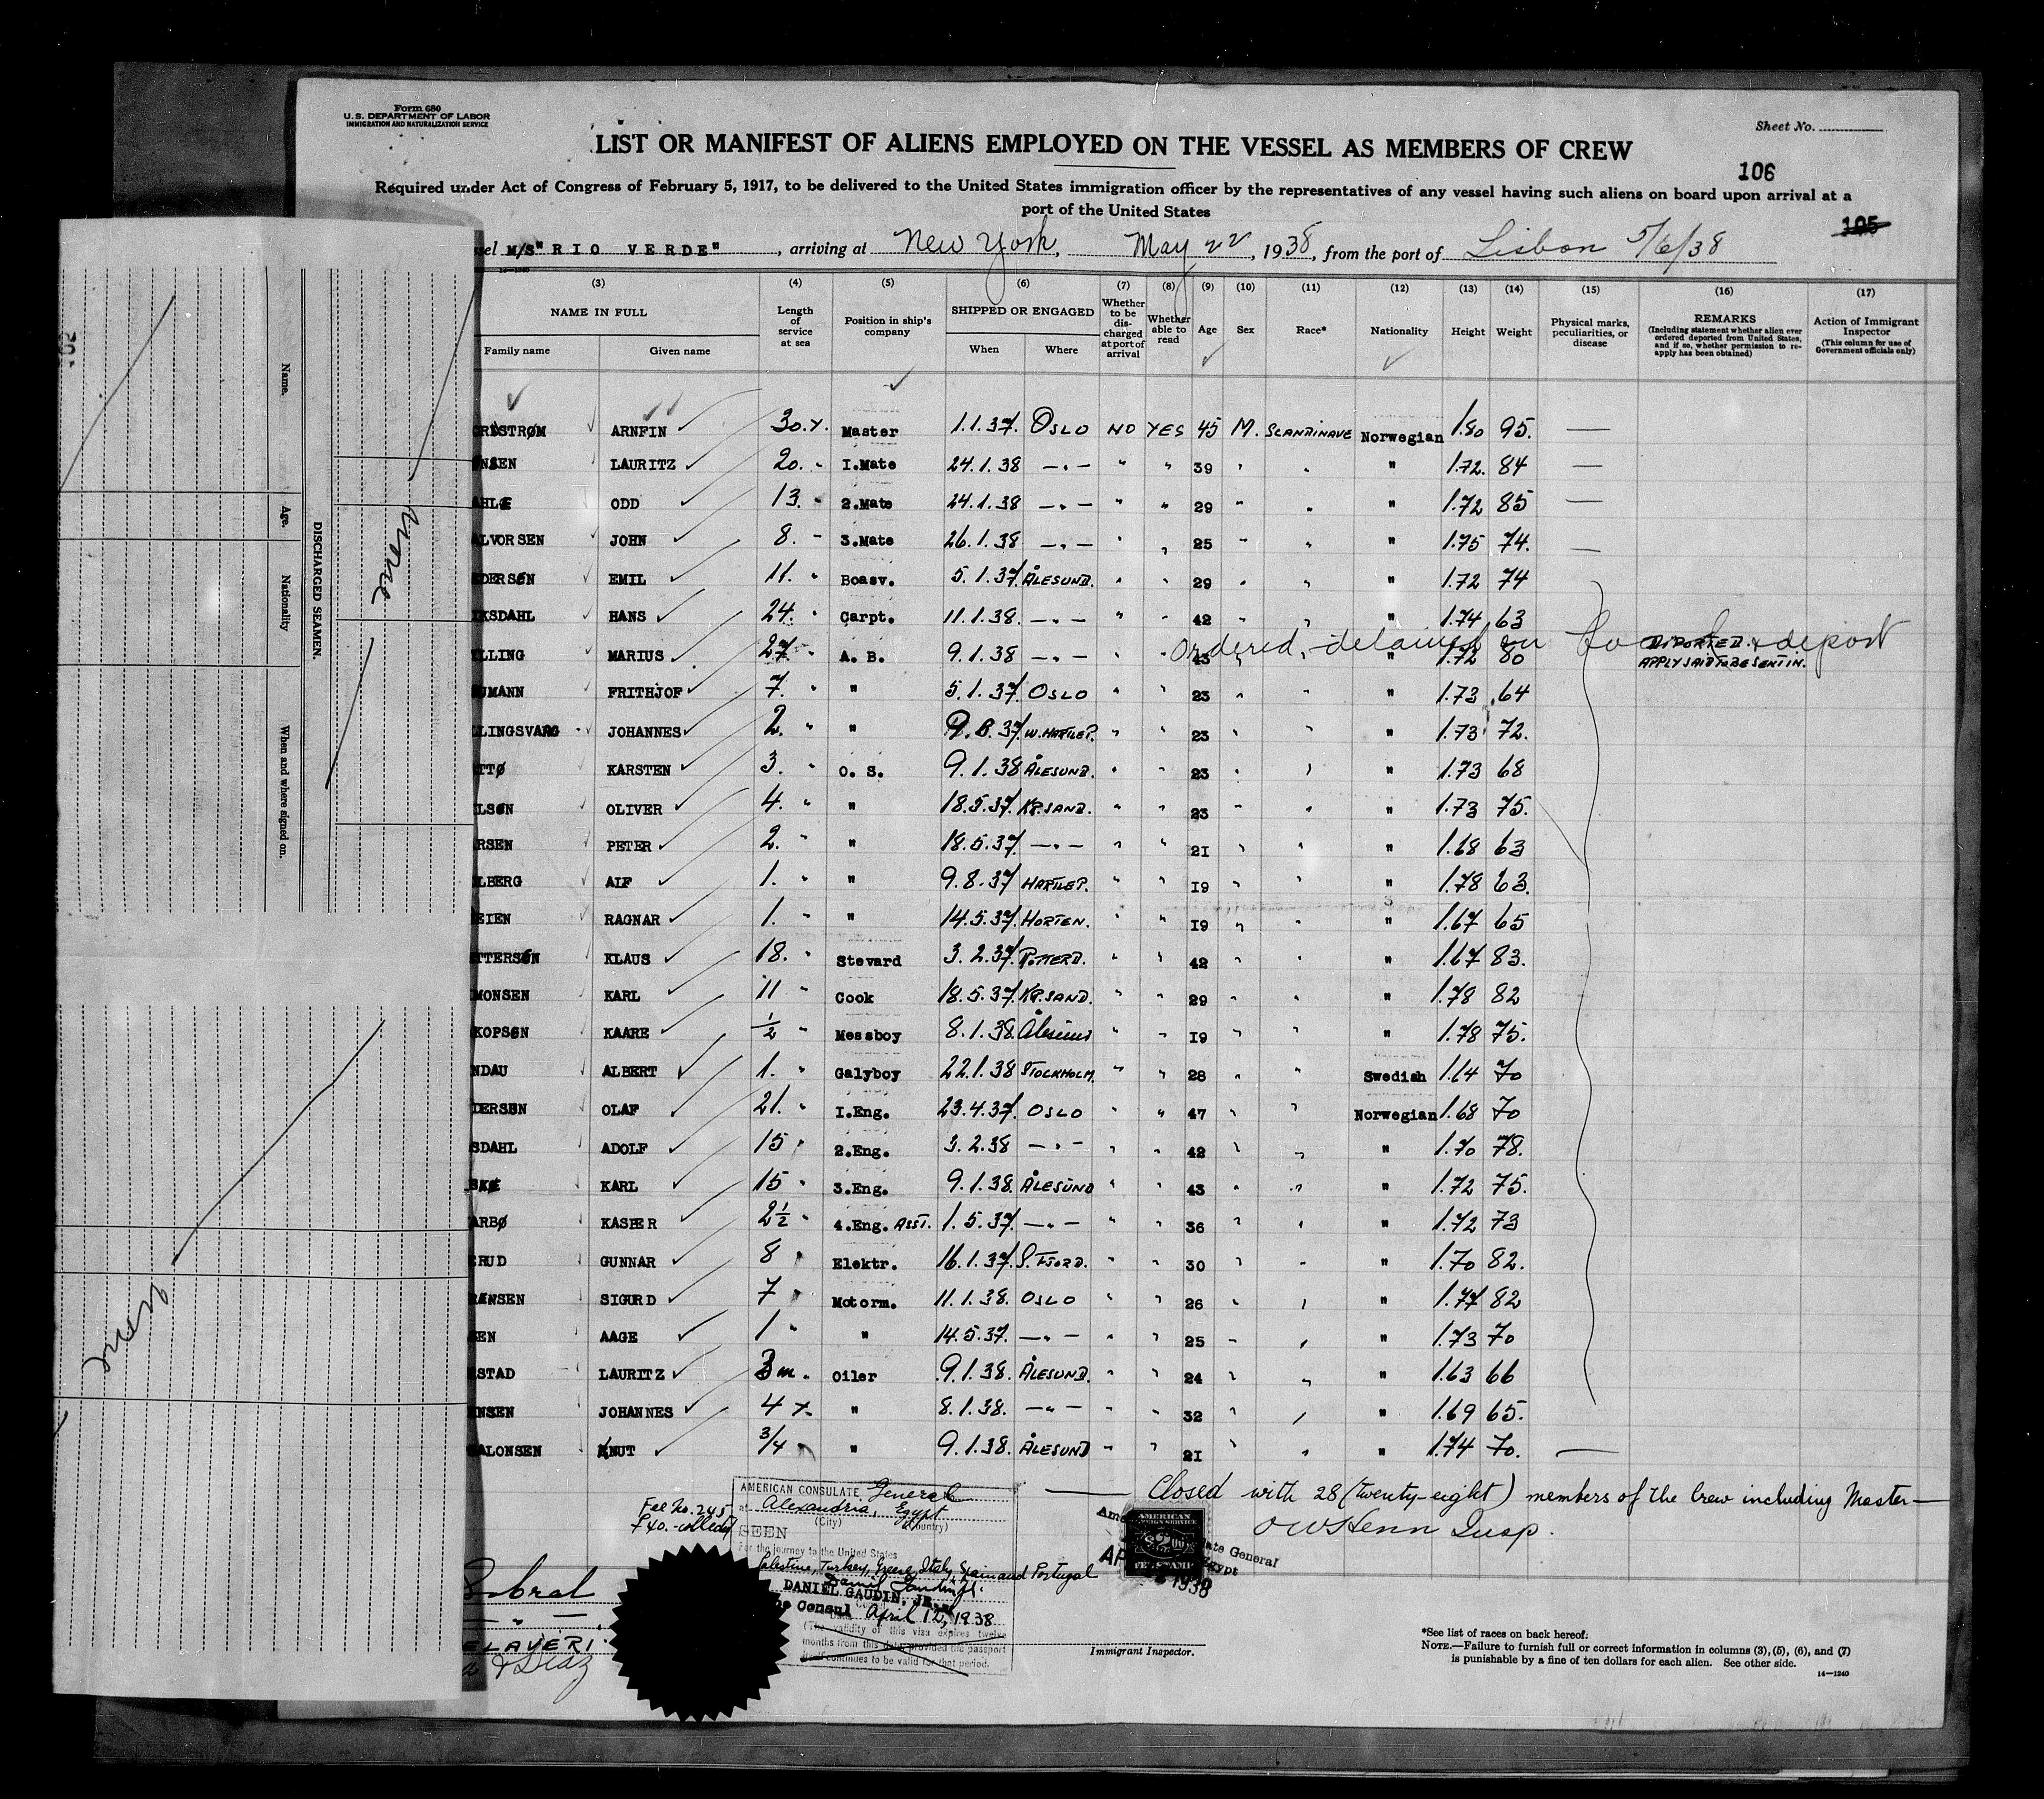 Form 680
U.S. DEPARTMENT OF LABOR
IMMIGRATION AND NATURALIZATION SERVICE
Sheet No.
LIST OR MANIFEST OF ALIENS EMPLOYED ON THE VESSEL AS MEMBERS OF CREW
106
Required under Act of Congress of February 5, 1917, to be delivered to the United States immigration officer by the representatives of any vessel having such aliens on board upon arrival at a
port of the United States
105
sel M/S "RIO VERDE", arriving at New York, May 22, 1938, from the port of Lisbon 5/6/38
14-1240
(3) (4) (5) (6) (7) (8) (9) (10) (11) (12) (13) (14) (15) (16) (17)
NAME IN FULL Family name Given name
Length of service at sea
Position in ship's company
SHIPPED OR ENGAGED When Where
Whether to be discharged at port of arrival
Whether able to read
Age Sex Race* Nationality Height Weight
Physical marks, peculiarities, or disease
REMARKS (Including statement whether alien ever ordered deported from United States, and if so, whether permission to re-apply has been obtained)
Action of Immigrant Inspector (This column for use of Government officials only)
ORDSTRØM ARNFIN 30.Y. Master 1.1.37. OSLO NO YES 45 M. SCANDINAVE Norwegian 1.80 95. —
NSEN LAURITZ 20. " I.Mate 24.1.38 —"— " " 39 " " " 1.72. 84 —
AHLE ODD 13. " 2.Mate 24.1.38 —"— " " 29 " " " 1.72 85 —
ALVORSEN JOHN 8. " 3.Mate 26.1.38 —"— " " 25 " " " 1.75 74. —
EDERSEN EMIL 11. " Boasv. 5.1.37. ÅLESUND. " " 29 " " " 1.72 74
IKSDAHL HANS 24. " Carpt. 11.1.38. —"— " " 42 " " " 1.74 63
Ordered detained on board & deport
LLING MARIUS 27 " A. B. 9.1.38 —"— " " 43 " " " 1.72 80 DEPORTED. APPLY SAID TO BE SENT IN.
UMANN FRITHJOF 7. " " 5.1.37. OSLO " " 23 " " " 1.73 64
LLINGSVAAG JOHANNES 2. " " 9.8.37. W.HARTLEP. " " 23 " " " 1.73 72.
TTØ KARSTEN 3. " O. S. 9.1.38 ÅLESUND. " " 23 " " " 1.73 68
LSEN OLIVER 4. " " 18.5.37. KR.SAND. " " 23 " " " 1.73 75.
RSEN PETER 2. " " 18.5.37. —"— " " 21 " " " 1.68 63
LBERG ALF 1. " " 9.8.37 HARTLEP. " " 19 " " " 1.78 63.
EIEN RAGNAR 1. " " 14.5.37. HORTEN. " " 19 " " " 1.67 65
TTERSEN KLAUS 18. " Stevard 3.2.37. ROTTERD. " " 42 " " " 1.67 83.
MONSEN KARL 11 " Cook 18.5.37. KR.SAND. " " 29 " " " 1.78 82
KOPSEN KAARE ½ " Messboy 8.1.38. Ålesund " " 19 " " " 1.78 75.
NDAU ALBERT 1. " Galyboy 22.1.38 STOCKHOLM. " " 28 " " Swedish 1.64 70
DERSEN OLAF 21. " I.Eng. 23.4.37. OSLO " " 47 " " Norwegian 1.68 70
SDAHL ADOLF 15 " 2.Eng. 3.2.38 —"— " " 42 " " " 1.70 78.
KARL 15 " 3.Eng. 9.1.38. ÅLESUND " " 43 " " " 1.72 75.
ARBØ KASPER 2½ " 4.Eng. ASST. 1.5.37. —"— " " 36 " " " 1.72 73
RUD GUNNAR 8 " Elektr. 16.1.37. S.FJORD. " " 30 " " " 1.70 82.
SIGURD 7 " Motorm. 11.1.38. OSLO " " 26 " " " 1.77 82
EN AAGE 1 " " 14.5.37. —"— " " 25 " " " 1.73 70
STAD LAURITZ 3 m. Oiler 9.1.38. ÅLESUND. " " 24 " " " 1.63 66
NSEN JOHANNES 4 Y. " 8.1.38. —"— " " 32 " " " 1.69 65.
ALONSEN KNUT 3/4 " " 9.1.38. ÅLESUND " " 21 " " " 1.74 70. —
— Closed with 28 (twenty-eight) members of the Crew including Master —
O W Henn Insp.
Fee No. 245
collected
AMERICAN CONSULATE General
at Alexandria, Egypt
(City) (Country)
SEEN
For the journey to the United States
Palestine, Turkey, Greece, Italy, Spain and Portugal
Daniel Gaudin Jr.
DANIEL GAUDIN, JR.
Consul April 12, 1938
(The validity of this visa expires twelve
months from this date provided the passport
itself continues to be valid for that period.
AMERICAN
FOREIGN SERVICE
$2.00
FEE STAMP
1938
Immigrant Inspector.
Sobral
*See list of races on back hereof.
NOTE.—Failure to furnish full or correct information in columns (3), (5), (6), and (7)
is punishable by a fine of ten dollars for each alien. See other side.
14—1240
DISCHARGED SEAMEN.
Name. Age. Nationality When and where signed on.
None
None